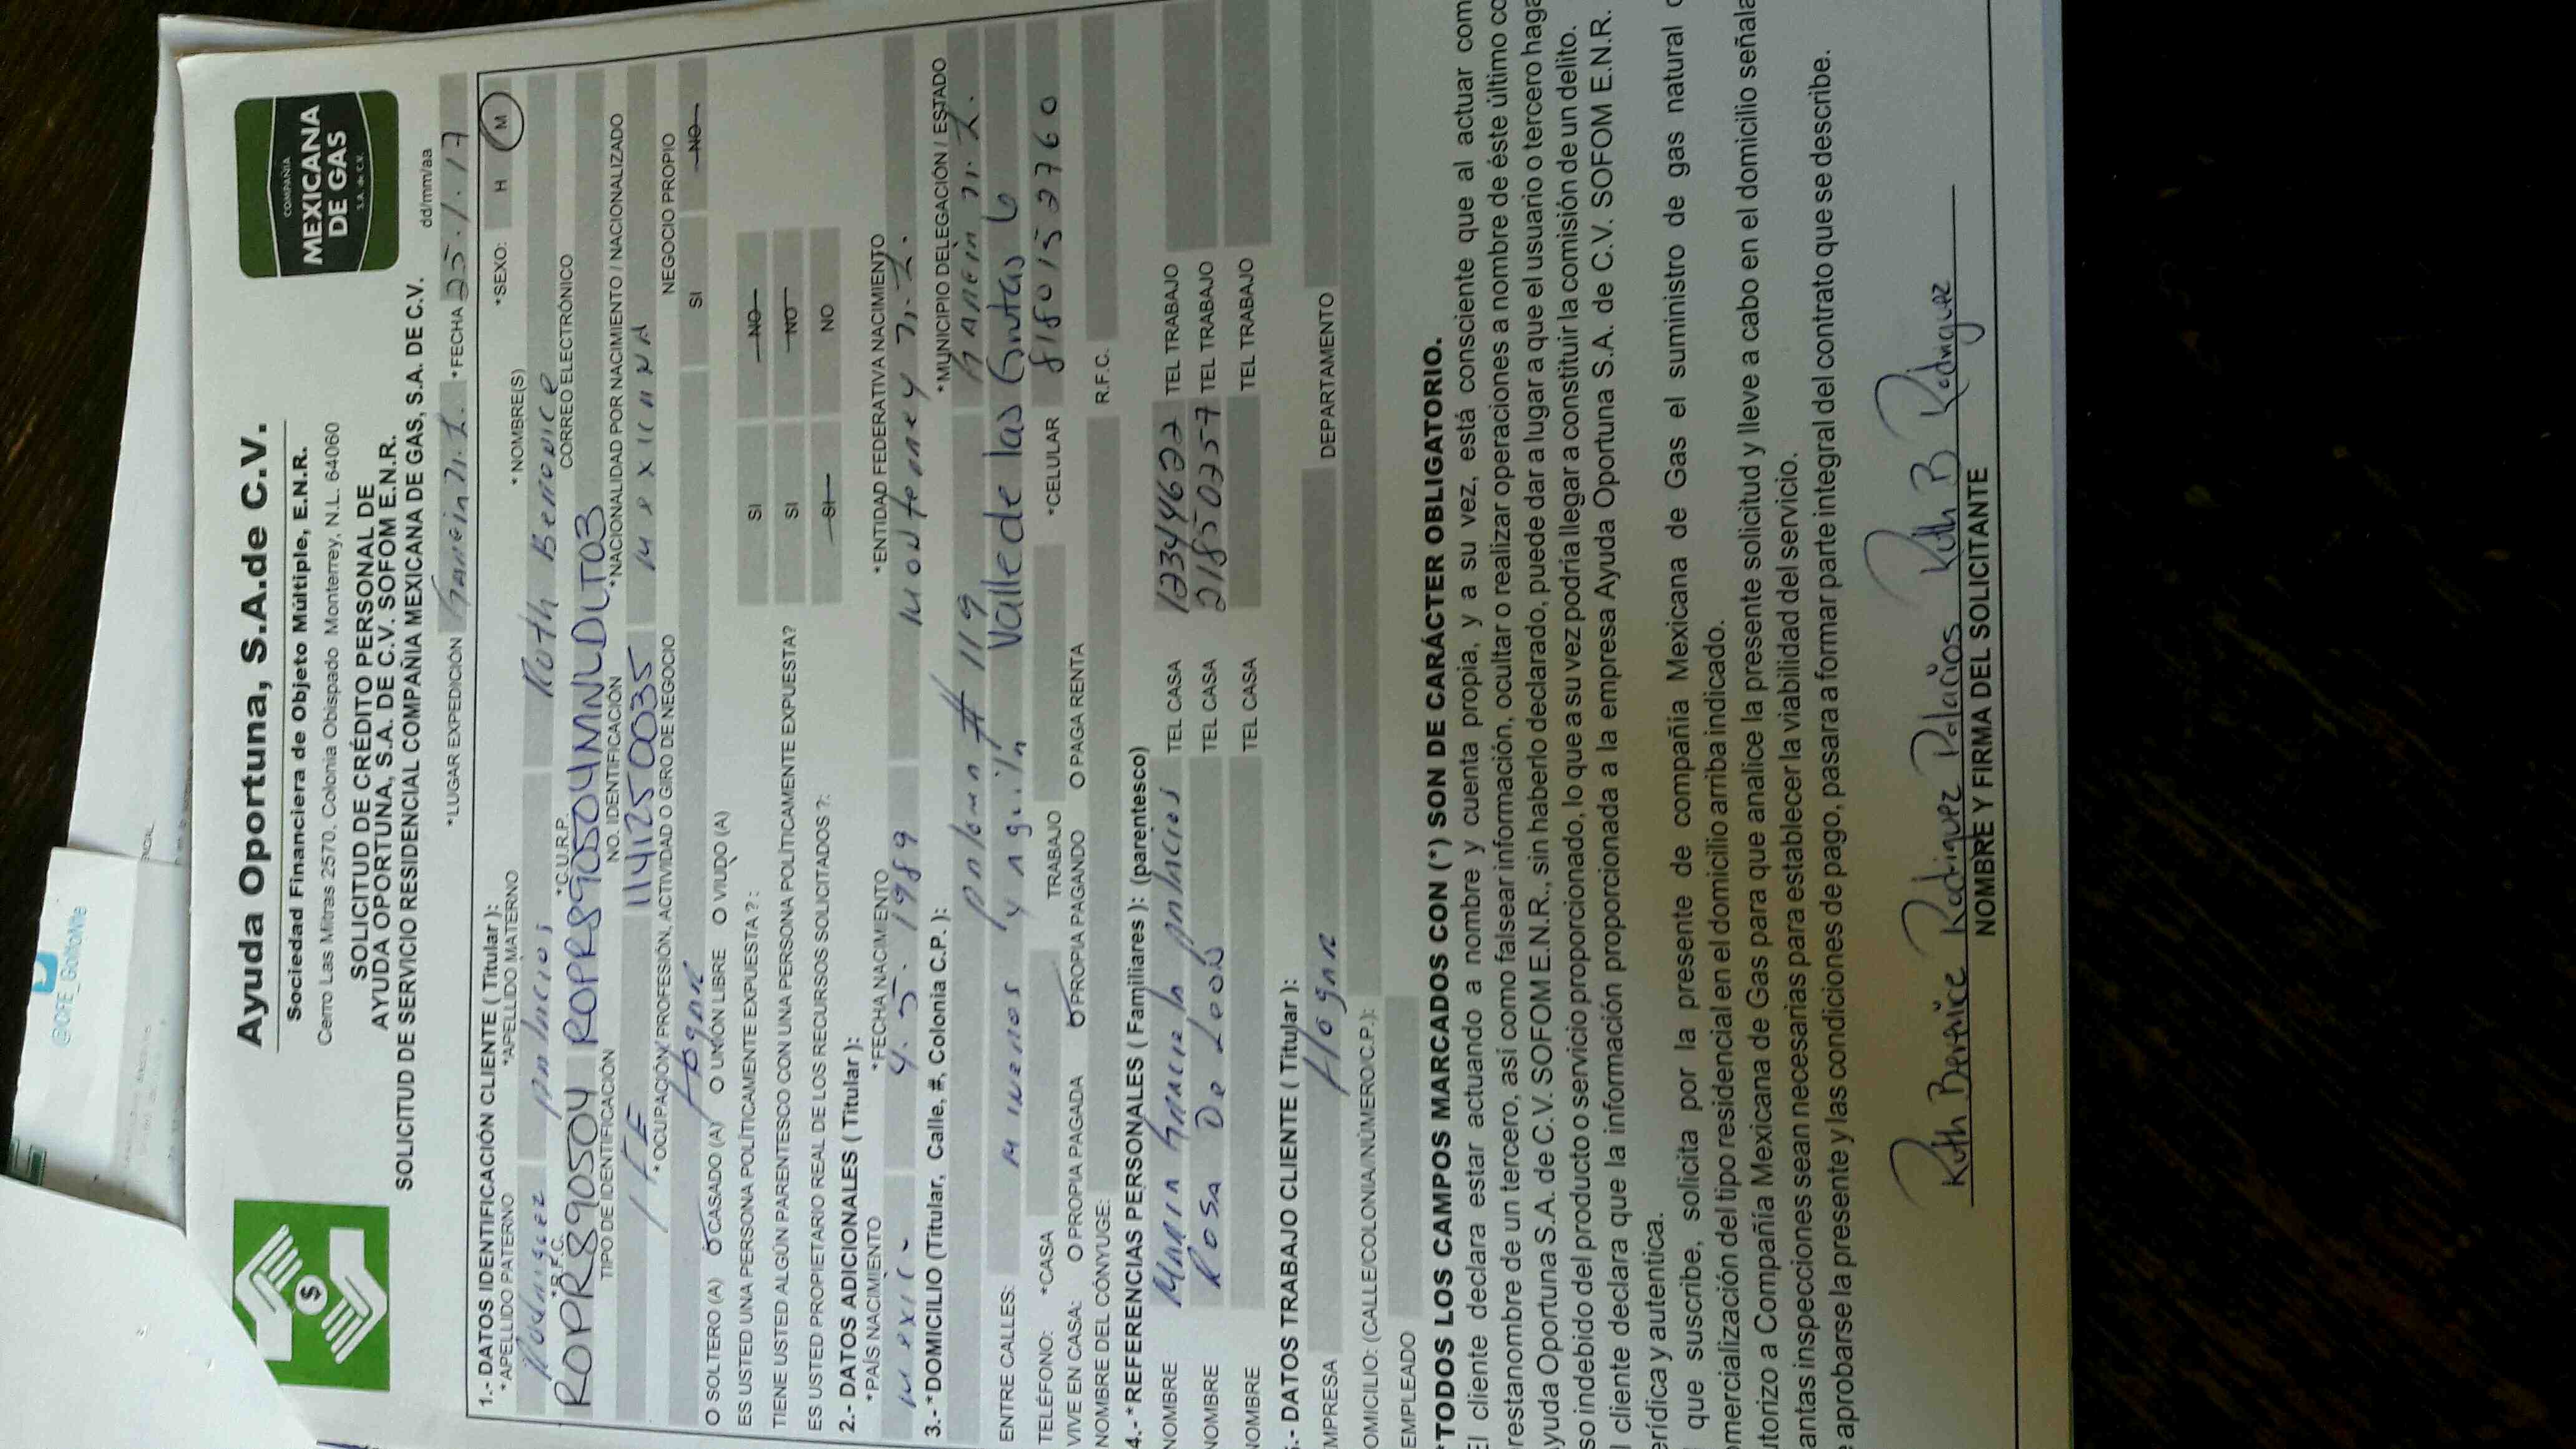 @OFE_GobMxMte
Ayuda Oportuna, S.A.de C.V.
Sociedad Financiera de Objeto Múltiple, E.N.R.
Cerro Las Mitras 2570, Colonia Obispado Monterrey, N.L. 64060
SOLICITUD DE CRÉDITO PERSONAL DE
AYUDA OPORTUNA, S.A. DE C.V. SOFOM E.N.R.
SOLICITUD DE SERVICIO RESIDENCIAL COMPAÑIA MEXICANA DE GAS, S.A. DE C.V.
COMPAÑIA
MEXICANA
DE GAS
S.A. de C.V.
dd/mm/aa
*LUGAR EXPEDICIÓN n.L. *FECHA 25.1.17
1.- DATOS IDENTIFICACIÓN CLIENTE ( Titular ): *SEXO: H M
*APELLIDO PATERNO *APELLIDO MATERNO *NOMBRE(S)
Rodriguez Palacios Ruth Berenice
*R.F.C. *C.U.R.P. CORREO ELECTRÓNICO
ROPR890504 ROPR890504MNLDLT03
TIPO DE IDENTIFICACIÓN NO. IDENTIFICACIÓN *NACIONALIDAD POR NACIMIENTO / NACIONALIZADO
IFE 1141250035 Mexicana
*OCUPACIÓN, PROFESIÓN, ACTIVIDAD O GIRO DE NEGOCIO NEGOCIO PROPIO
Hogar SI NO
O SOLTERO (A) O CASADO (A) O UNIÓN LIBRE O VIUDO (A)
ES USTED UNA PERSONA POLÍTICAMENTE EXPUESTA ?: SI NO
TIENE USTED ALGÚN PARENTESCO CON UNA PERSONA POLÍTICAMENTE EXPUESTA? SI NO
ES USTED PROPIETARIO REAL DE LOS RECURSOS SOLICITADOS ?: SI NO
2.- DATOS ADICIONALES ( Titular ):
*PAÍS NACIMIENTO *FECHA NACIMIENTO *ENTIDAD FEDERATIVA NACIMIENTO
Mexico 4.5.1989 Monterrey n.L.
3.- *DOMICILIO (Titular, Calle, #, Colonia C.P. ): *MUNICIPIO DELEGACIÓN / ESTADO
Paloma # 119 Garcia n.L.
ENTRE CALLES: y Valle de las Grutas
TELÉFONO: *CASA TRABAJO *CELULAR 8180152760
VIVE EN CASA: O PROPIA PAGADA O PROPIA PAGANDO O PAGA RENTA
NOMBRE DEL CÓNYUGE: R.F.C.
4.- *REFERENCIAS PERSONALES ( Familiares ): (parentesco)
NOMBRE Maria Graciela Palacios TEL CASA 1234462 TEL TRABAJO
NOMBRE Rosa De Leon TEL CASA 21850357 TEL TRABAJO
NOMBRE TEL CASA TEL TRABAJO
.- DATOS TRABAJO CLIENTE ( Titular ):
MPRESA Hogar DEPARTAMENTO
OMICILIO: (CALLE/COLONIA/NÚMERO C.P.):
EMPLEADO
*TODOS LOS CAMPOS MARCADOS CON (*) SON DE CARÁCTER OBLIGATORIO.
El cliente declara estar actuando a nombre y cuenta propia, y a su vez, está consciente que al actuar com
restanombre de un tercero, así como falsear información, ocultar o realizar operaciones a nombre de éste último co
yuda Oportuna S.A. de C.V. SOFOM E.N.R., sin haberlo declarado, puede dar a lugar a que el usuario o tercero haga
so indebido del producto o servicio proporcionado, lo que a su vez podría llegar a constituir la comisión de un delito.
l cliente declara que la información proporcionada a la empresa Ayuda Oportuna S.A. de C.V. SOFOM E.N.R.
erídica y autentica.
que suscribe, solicita por la presente de compañia Mexicana de Gas el suministro de gas natural
omercialización del tipo residencial en el domicilio arriba indicado.
utorizo a Compañía Mexicana de Gas para que analice la presente solicitud y lleve a cabo en el domicilio señala
antas inspecciones sean necesarias para establecer la viabilidad del servicio.
e aprobarse la presente y las condiciones de pago, pasara a formar parte integral del contrato que se describe.
Ruth Berenice Rodriguez Palacios Ruth B Rodriguez
NOMBRE Y FIRMA DEL SOLICITANTE